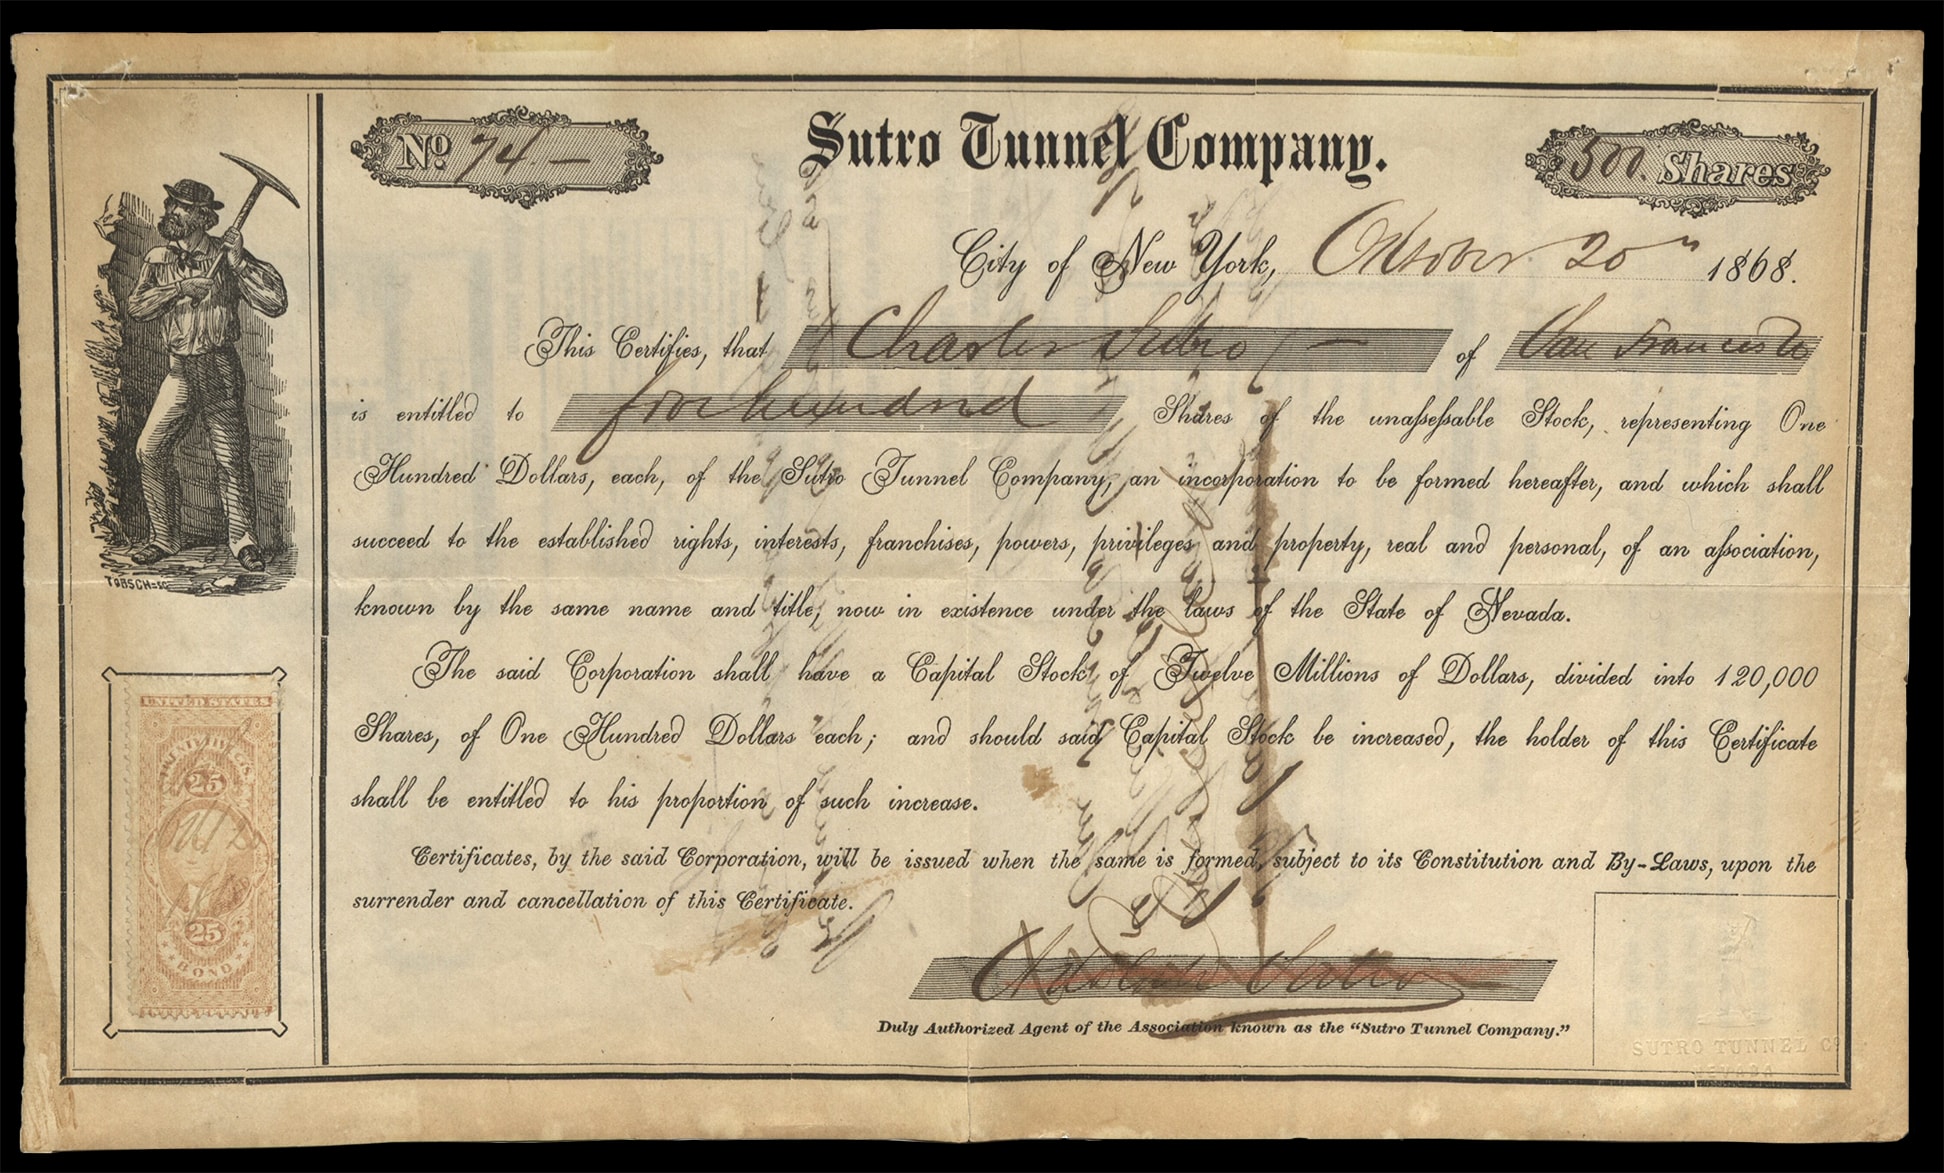 No. 74. —
Sutro Tunnel Company.
500. Shares
City of New York, October 20" 1868.
This Certifies, that Charles Sutro — of San Francisco
is entitled to five hundred Shares of the unaſseſsable Stock, representing One
Hundred Dollars, each, of the Sutro Tunnel Company, an incorporation to be formed hereafter, and which shall
succeed to the established rights, interests, franchises, powers, privileges and property, real and personal, of an aſsociation,
known by the same name and title, now in existence under the laws of the State of Nevada.
The said Corporation shall have a Capital Stock of Twelve Millions of Dollars, divided into 120,000
Shares, of One Hundred Dollars each; and should said Capital Stock be increased, the holder of this Certificate
shall be entitled to his proportion of such increase.
Certificates, by the said Corporation, will be issued when the same is formed, subject to its Constitution and By-Laws, upon the
surrender and cancellation of this Certificate.
Sutro
Duly Authorized Agent of the Association known as the "Sutro Tunnel Company."
SUTRO TUNNEL Co
NEVADA
TOBSCH=SC
UNITED STATES
TWENTY FIVE CTS.
25
Oct 20
25
BOND